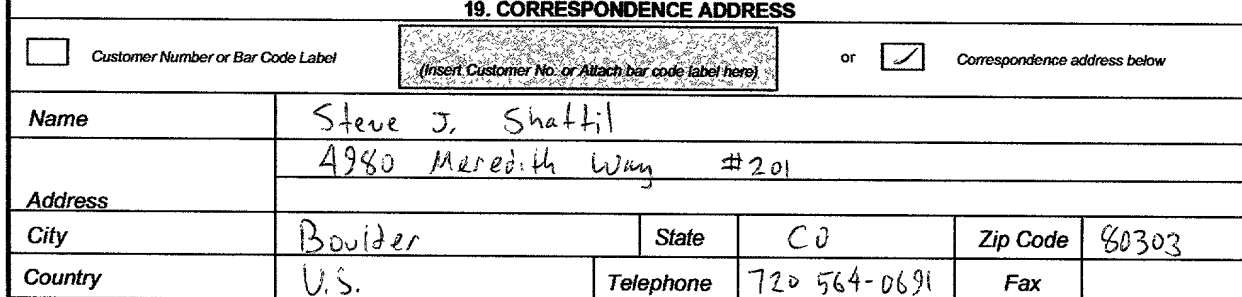 19. CORRESPONDENCE ADDRESS
Customer Number or Bar Code Label (Insert Customer No. or Attach bar code label here) or Correspondence address below
Name Steve J. Shattil
4980 Meredith Way #201
Address
City Boulder State CO Zip Code 80303
Country U.S. Telephone 720 564-0691 Fax